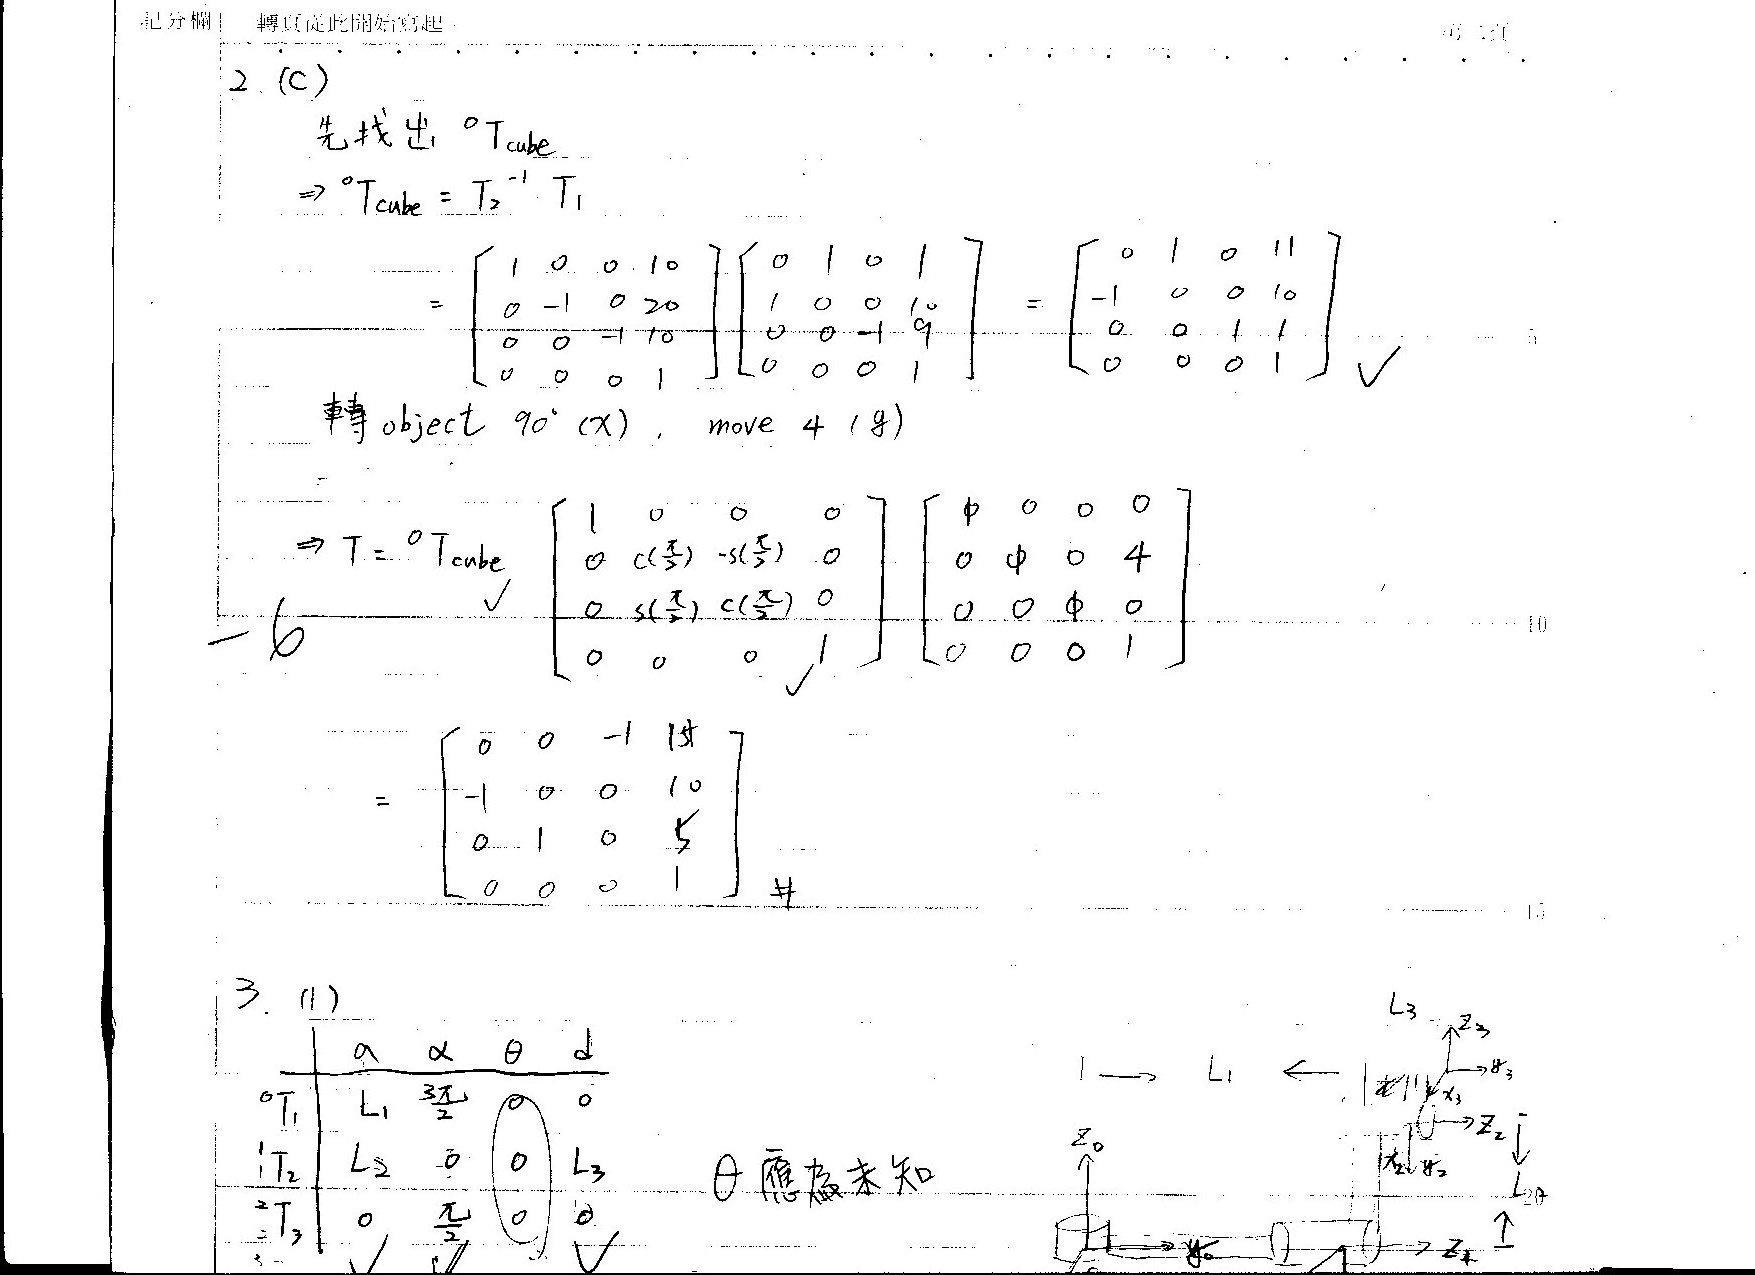 記分欄 轉頁從此開始寫起
2. (C)
先找出 ⁰Tcube
⇒ ⁰Tcube = T₂⁻¹ T₁
= [1 0 0 10; 0 -1 0 20; 0 0 -1 10; 0 0 0 1] [0 1 0 1; 1 0 0 10; 0 0 -1 9; 0 0 0 1] = [0 1 0 11; -1 0 0 10; 0 0 1 1; 0 0 0 1] ✓
5
轉 object 90° (x), move 4 (y)
⇒ T = ⁰Tcube ✓ [1 0 0 0; 0 c(π/2) -s(π/2) 0; 0 s(π/2) c(π/2) 0; 0 0 0 1] ✓ [φ 0 0 0; 0 φ 0 4; 0 0 φ 0; 0 0 0 1]
-6
10
= [0 0 -1 ; -1 0 0 10; 0 1 0 5; 0 0 0 1] #
15
3. (1)
a α θ d
⁰T₁ L₁ 3π/2 0 0
¹T₂ L₂ 0 0 L₃
²T₃ 0 π/2 0 0
✓ ✓
θ應為未知
L₃
Z₃
L₁
y₃
x₃
Z₂
Z₀
x₂ y₂
20
y₀
Z₁